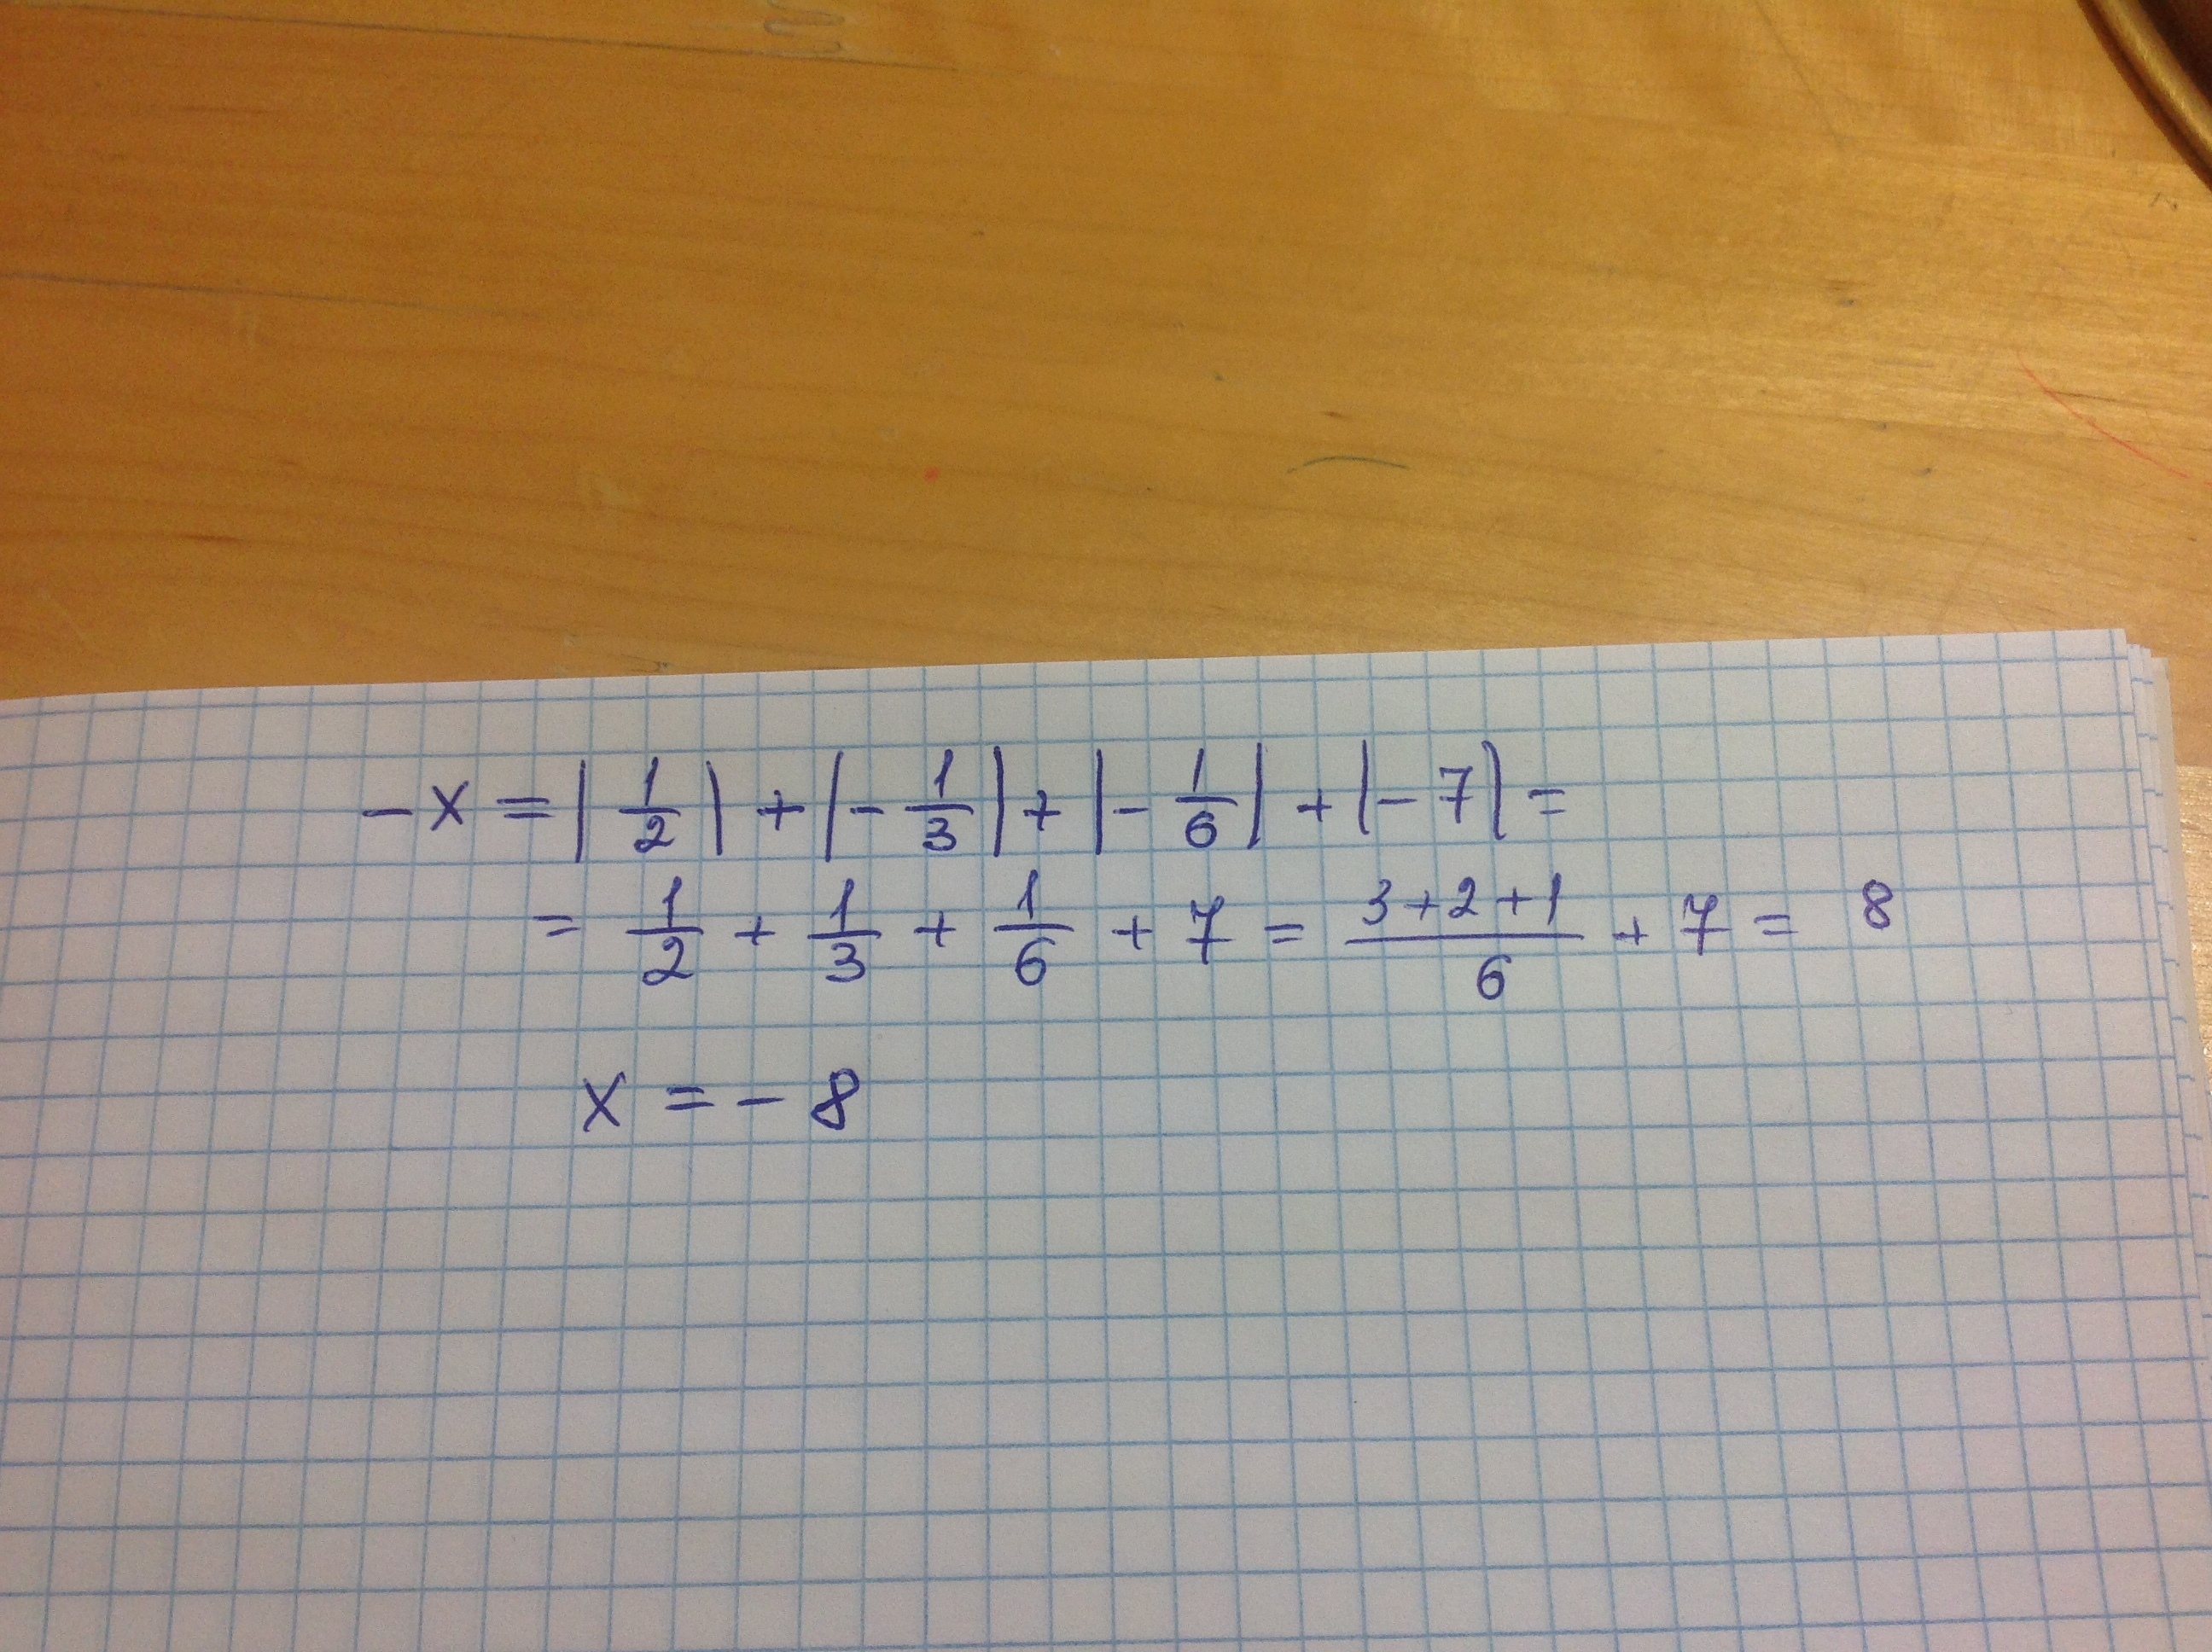 -x = |1/2| + |-1/3| + |-1/6| + |-7| =
= 1/2 + 1/3 + 1/6 + 7 = (3+2+1)/6 + 7 = 8
x = -8